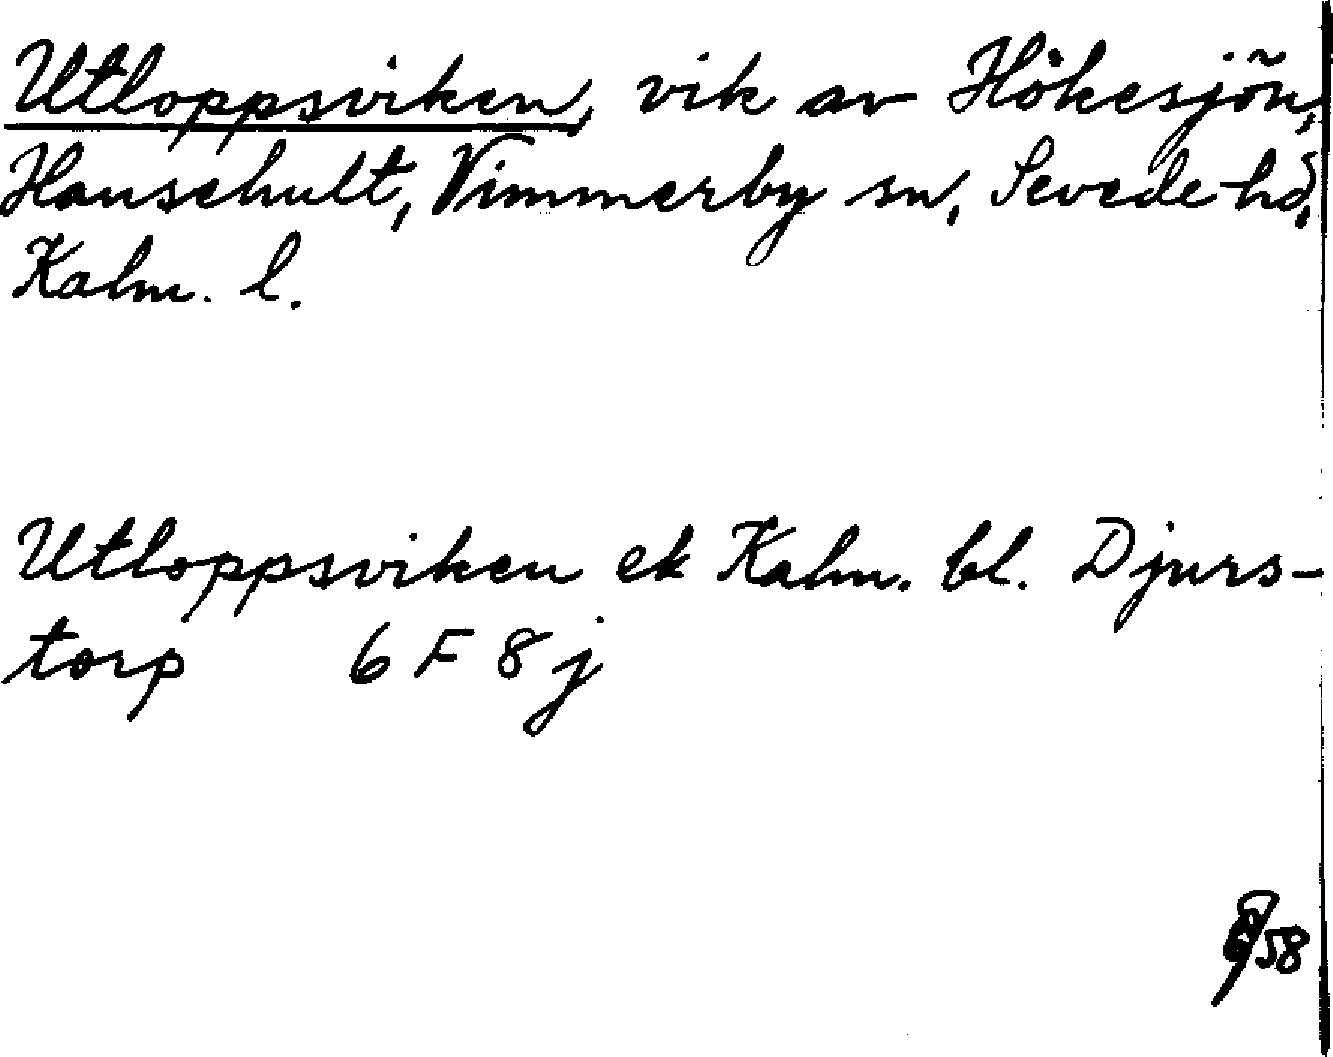 Utloppsviken, vik av Hökesjön,
Hauschult, Vimmerby sn, Sevede hd,
Kalm. l.
Utloppsviken ek Kalm. bl. Djurs-
torp 6 F 8 j
58